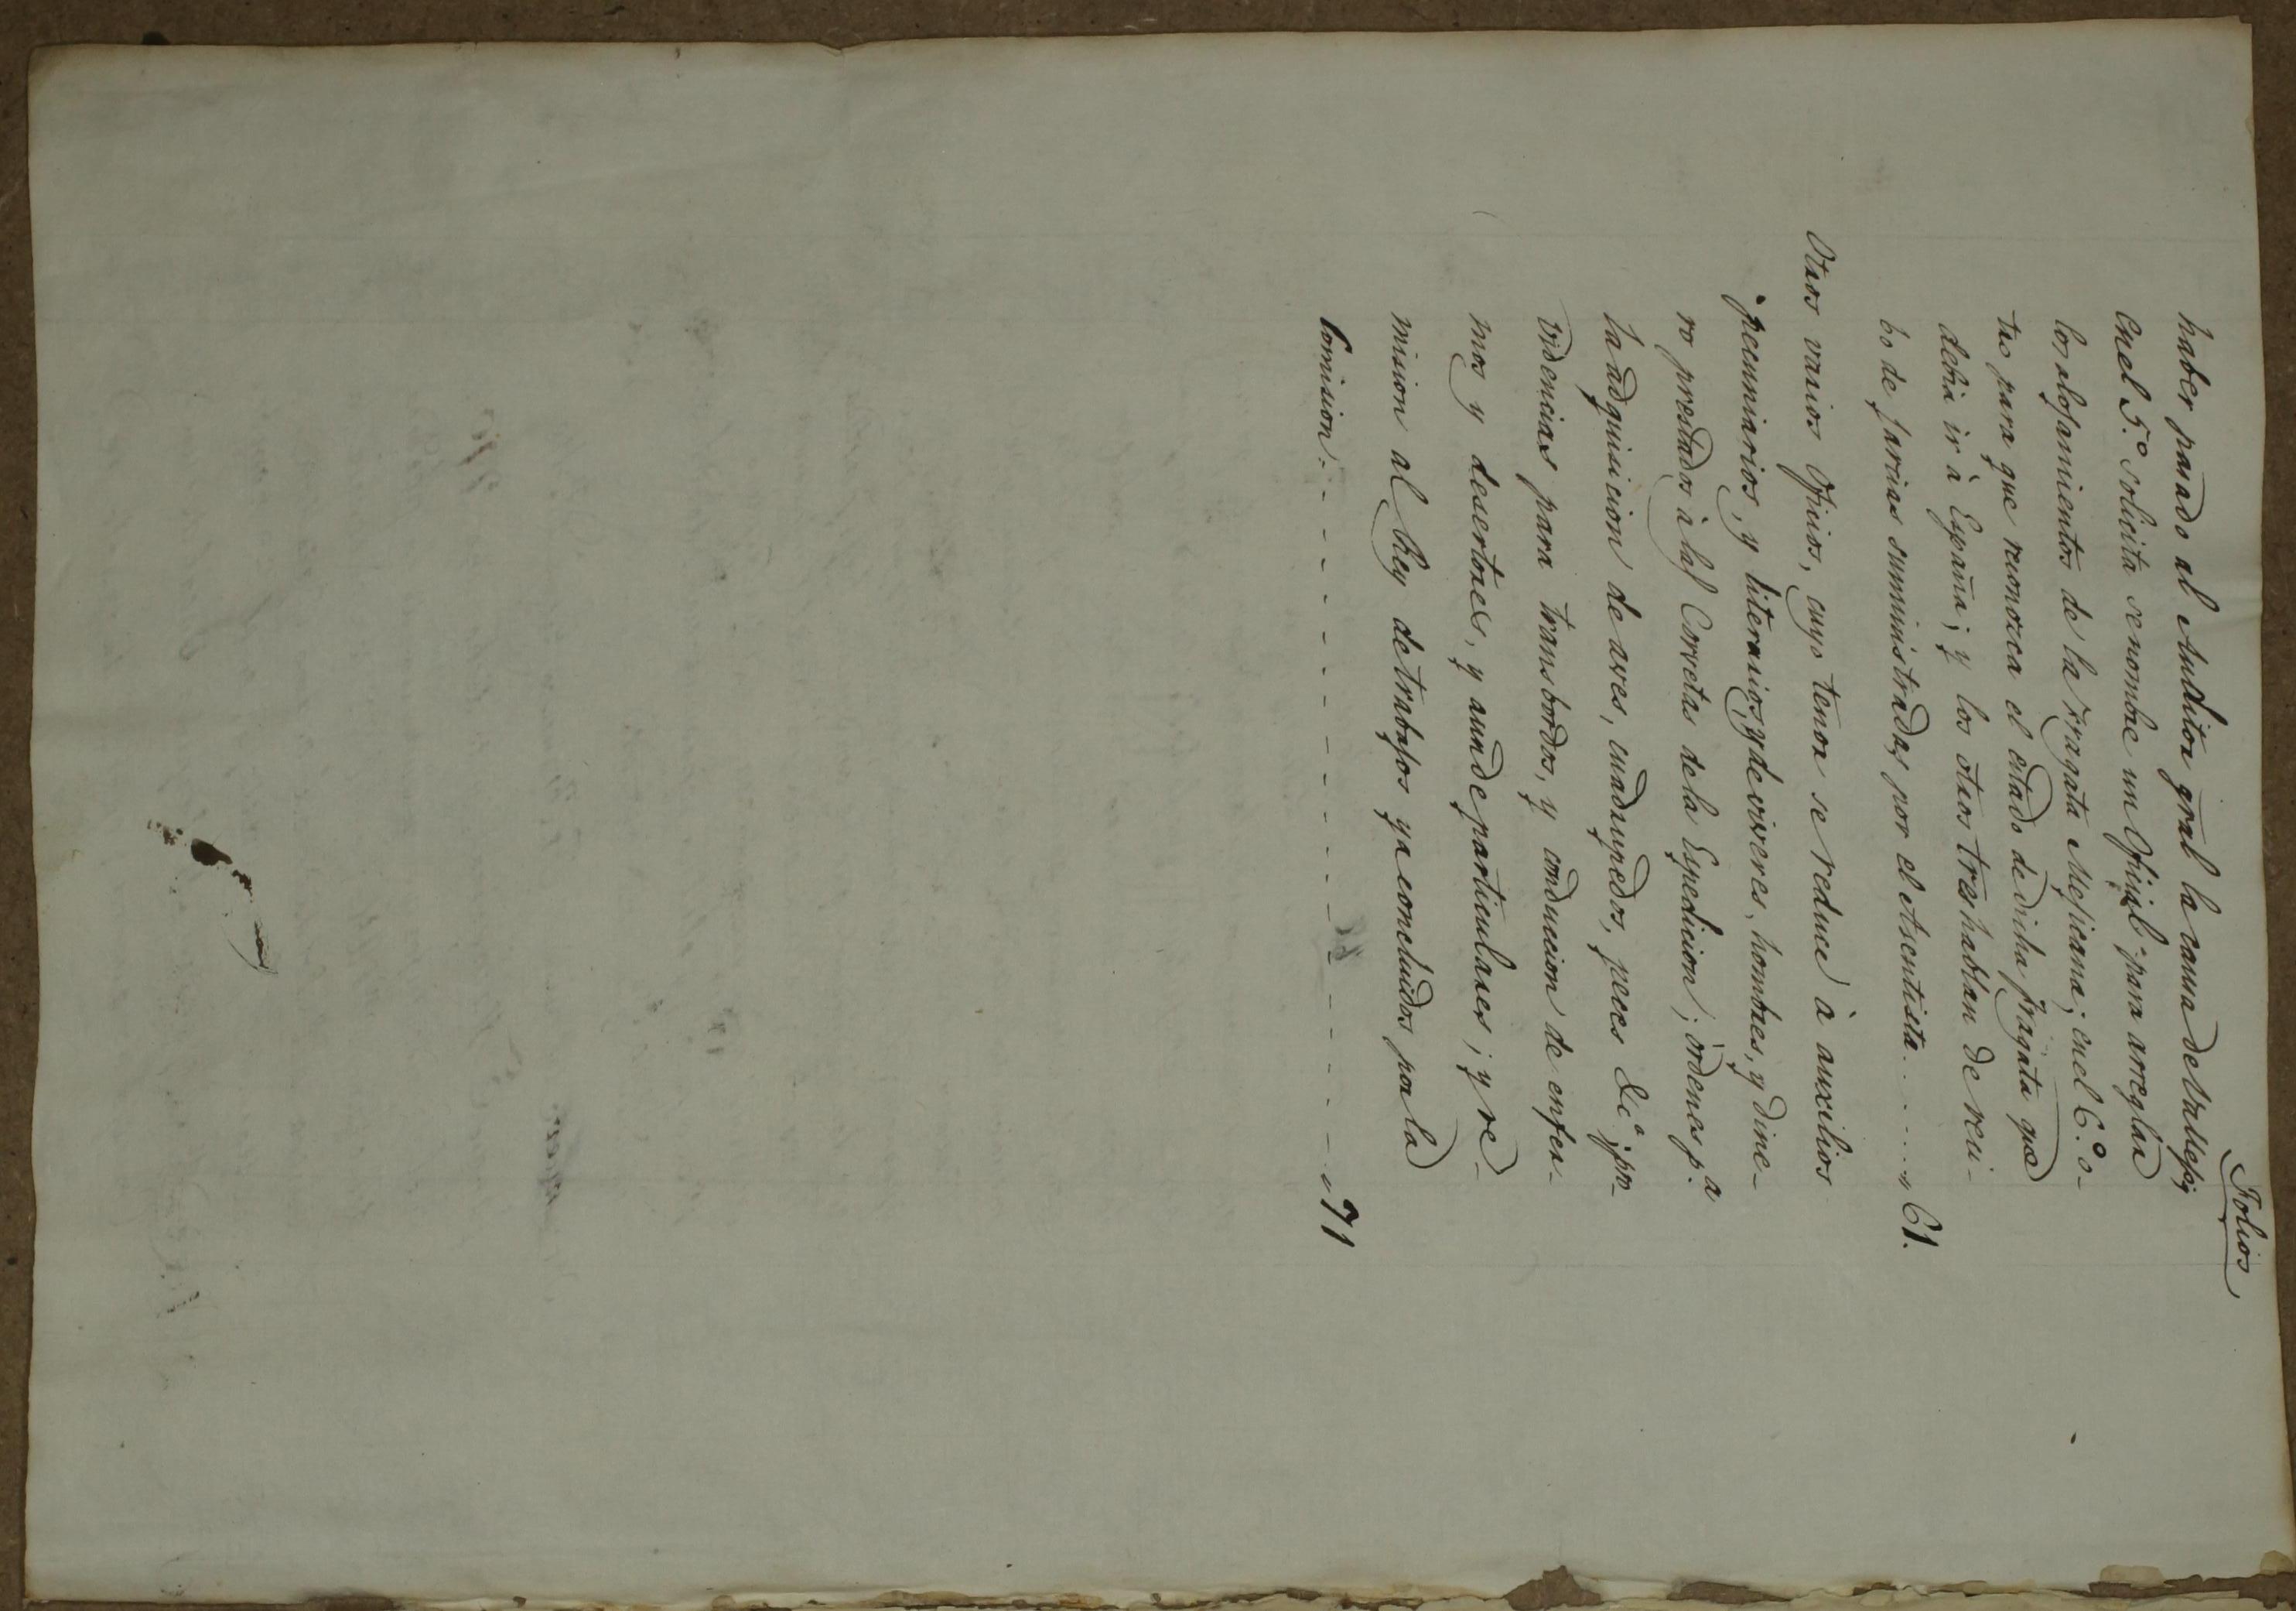 Folios
haber pasado al Auditor gral la causa de Vallesig
en el 5.º solicita se nombre un Oficial para arreglar
los alojamientos de la Fragata Mejicana; en el 6.º o-
tro para que reconozca el estado de dicha fragata que
debia ir à España; y los otros tres hablan de reci-
bo de jarcias suministradas por el Asentista . . . . . . „ 61.
Otros varios Oficios, cuyo tenor se reduce à auxilios
pecuniarios, y literarios, y de viveres, hombres, y dine-
ro prestados à las Corvetas de la Espedicion; ordenes p.ª
la adquisicion de aves, cuadrupedos, peces &c.ª; pro-
videncias para transbordos, y conduccion de enfer-
mos y desertores, y aun de particulares; y re-
mision al Rey de trabajos ya concluidos por la
Comision. - - - - - - - - - - - - - - - „ 71